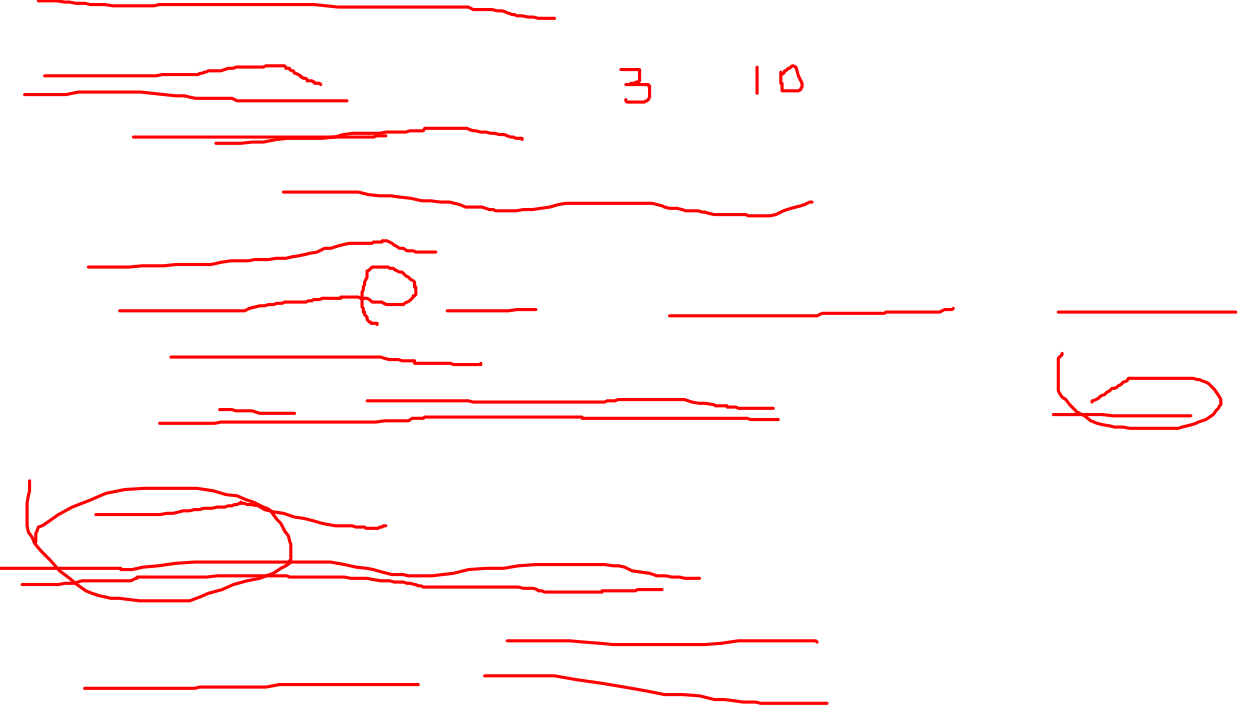 3 10